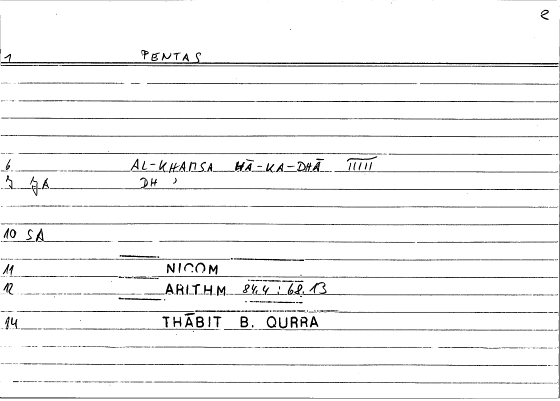 e
1 PENTAS
6 AL-KHAMSA HĀ-KA-DHĀ IIIII
7 JA DH '
10 SA
11 NICOM
12 ARITHM 84.4 : 68.13
14 THĀBIT B. QURRA